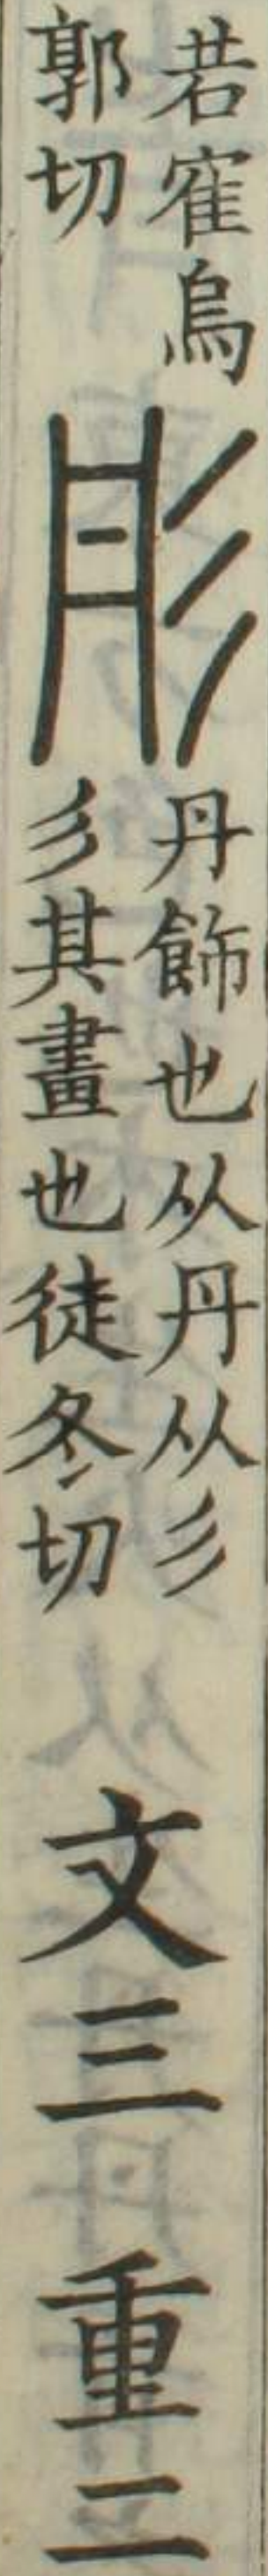 若隺烏
郭切
彤
丹飾也从丹从彡
彡其畫也徒冬切
文三 重二